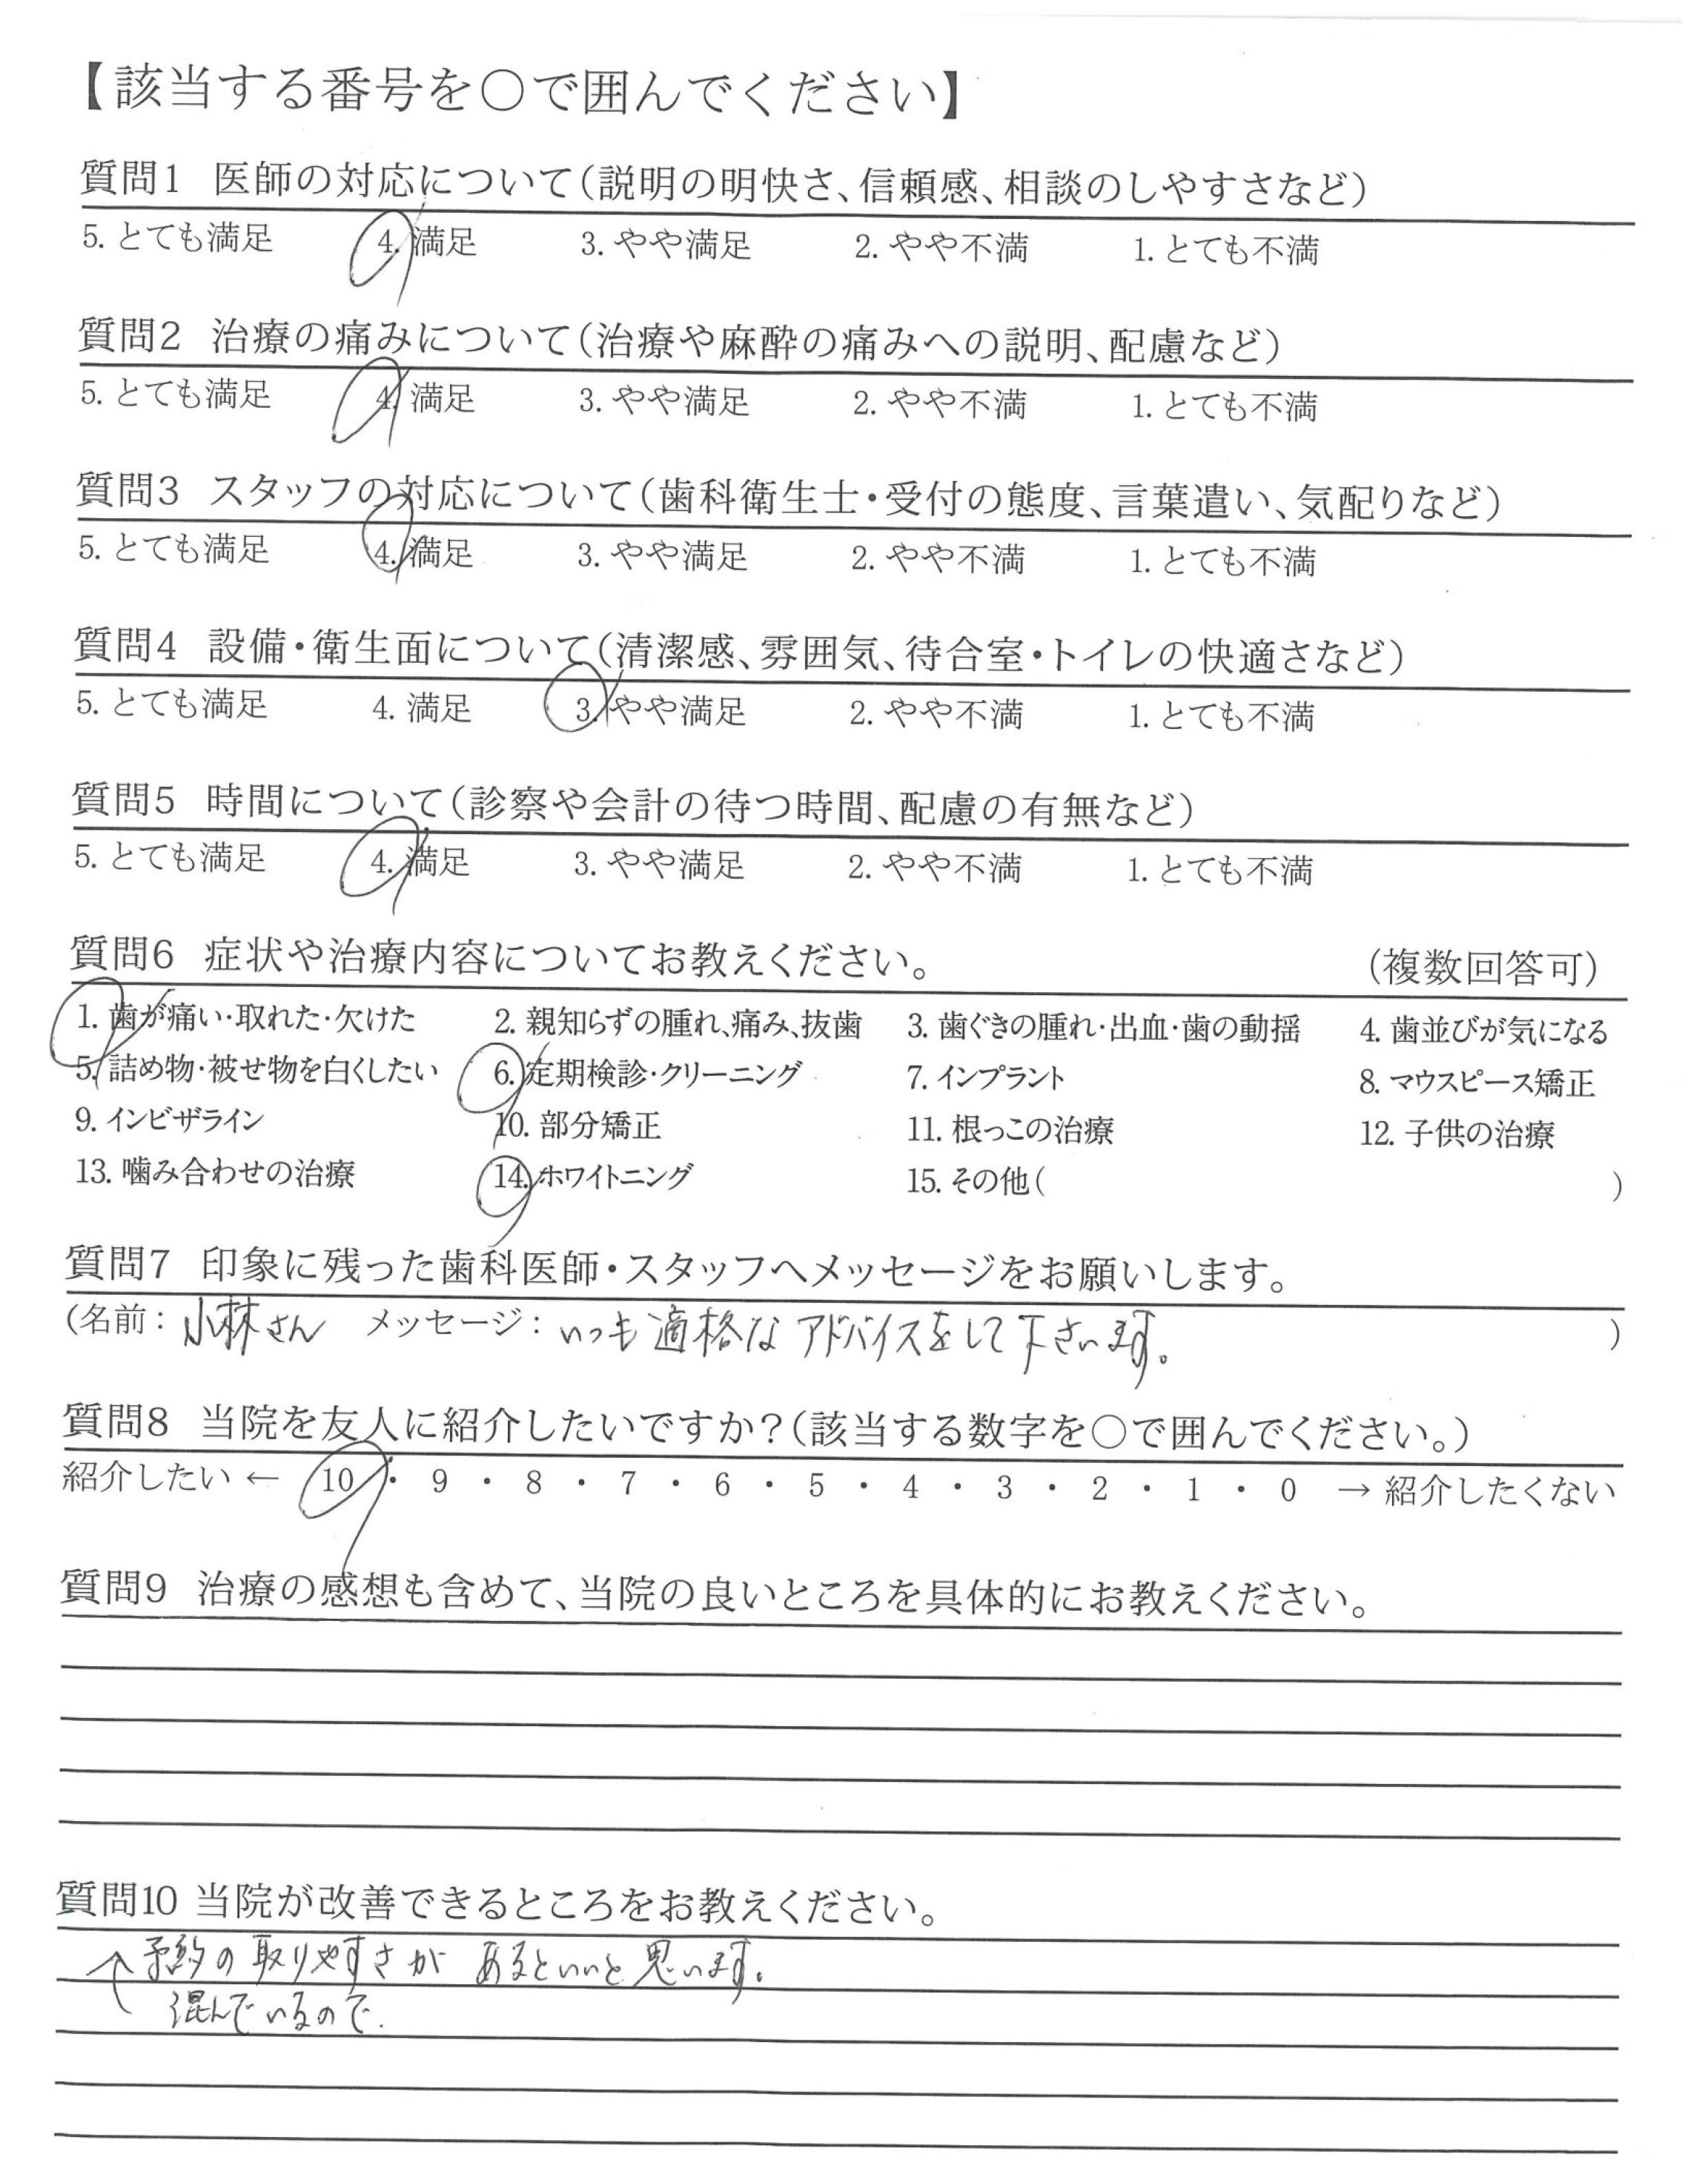 【該当する番号を○で囲んでください】
質問1 医師の対応について(説明の明快さ、信頼感、相談のしやすさなど)
5. とても満足 4. 満足 3. やや満足 2. やや不満 1. とても不満
質問2 治療の痛みについて(治療や麻酔の痛みへの説明、配慮など)
5. とても満足 4. 満足 3. やや満足 2. やや不満 1. とても不満
質問3 スタッフの対応について(歯科衛生士・受付の態度、言葉遣い、気配りなど)
5. とても満足 4. 満足 3. やや満足 2. やや不満 1. とても不満
質問4 設備・衛生面について(清潔感、雰囲気、待合室・トイレの快適さなど)
5. とても満足 4. 満足 3. やや満足 2. やや不満 1. とても不満
質問5 時間について(診察や会計の待つ時間、配慮の有無など)
5. とても満足 4. 満足 3. やや満足 2. やや不満 1. とても不満
質問6 症状や治療内容についてお教えください。 (複数回答可)
1. 歯が痛い・取れた・欠けた 2. 親知らずの腫れ、痛み、抜歯 3. 歯ぐきの腫れ・出血・歯の動揺 4. 歯並びが気になる
5. 詰め物・被せ物を白くしたい 6. 定期検診・クリーニング 7. インプラント 8. マウスピース矯正
9. インビザライン 10. 部分矯正 11. 根っこの治療 12. 子供の治療
13. 噛み合わせの治療 14. ホワイトニング 15. その他( )
質問7 印象に残った歯科医師・スタッフへメッセージをお願いします。
(名前: 小林さん メッセージ: いつも適格なアドバイスをして下さいます。 )
質問8 当院を友人に紹介したいですか?(該当する数字を○で囲んでください。)
紹介したい ← 10 ・ 9 ・ 8 ・ 7 ・ 6 ・ 5 ・ 4 ・ 3 ・ 2 ・ 1 ・ 0 → 紹介したくない
質問9 治療の感想も含めて、当院の良いところを具体的にお教えください。
質問10 当院が改善できるところをお教えください。
予約の取りやすさが あるといいと思います。
混んでいるので.